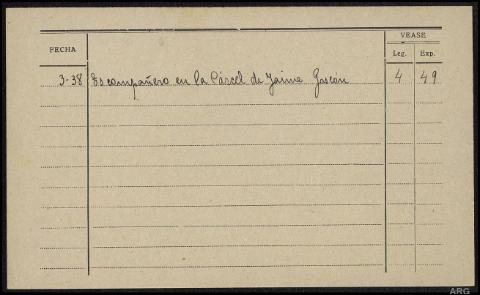 VEASE
FECHA Leg. Exp.
3-38 Es compañero en la Cárcel de Jaime Gascón 4 49
ARG